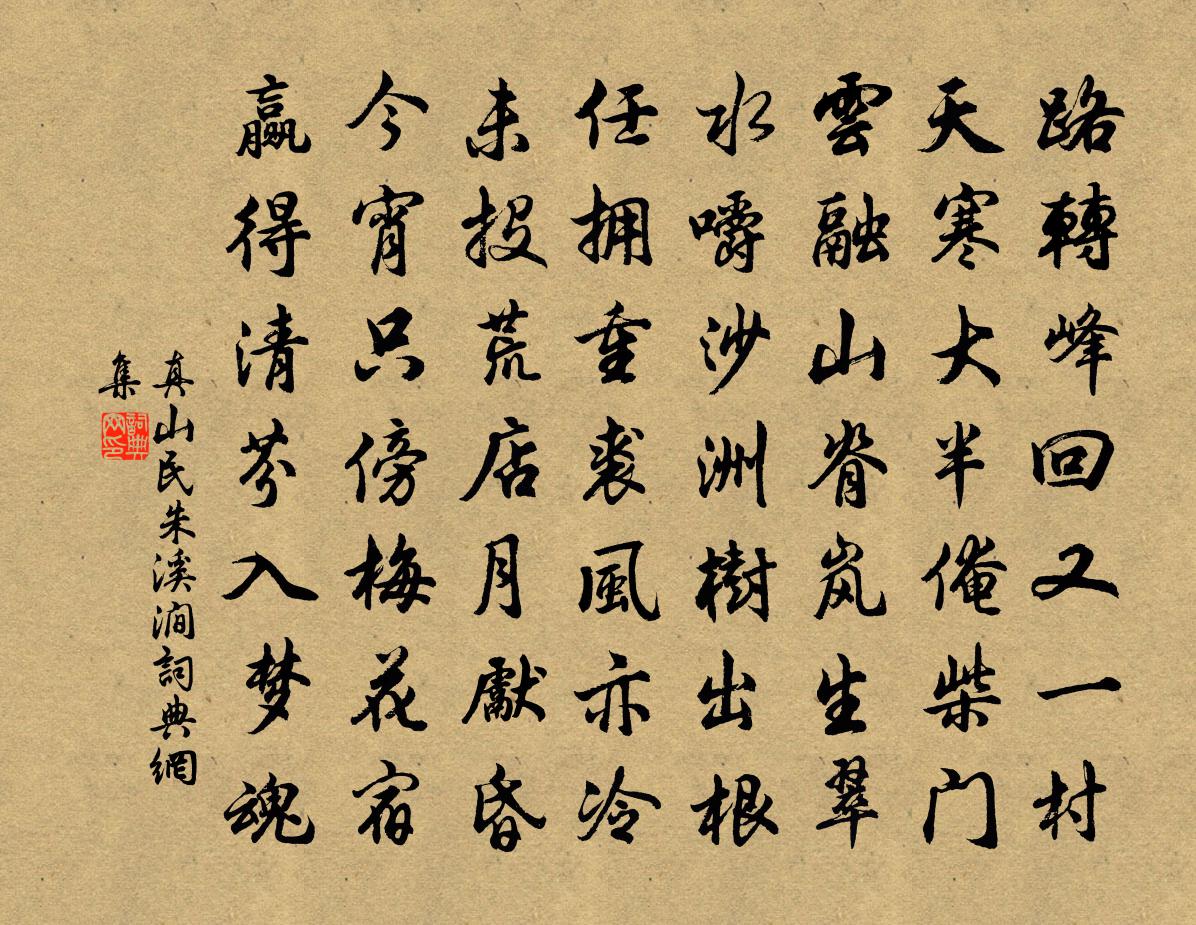 路轉峰回又一村
天寒大半俺柴门
雲融山脊岚生翠
水嚼沙洲樹出根
任拥重裘風亦冷
未投荒店月獻昏
今宵只傍梅花宿
赢得清芬入梦魂
真山民朱溪澗詞典網
集
詞典
网印